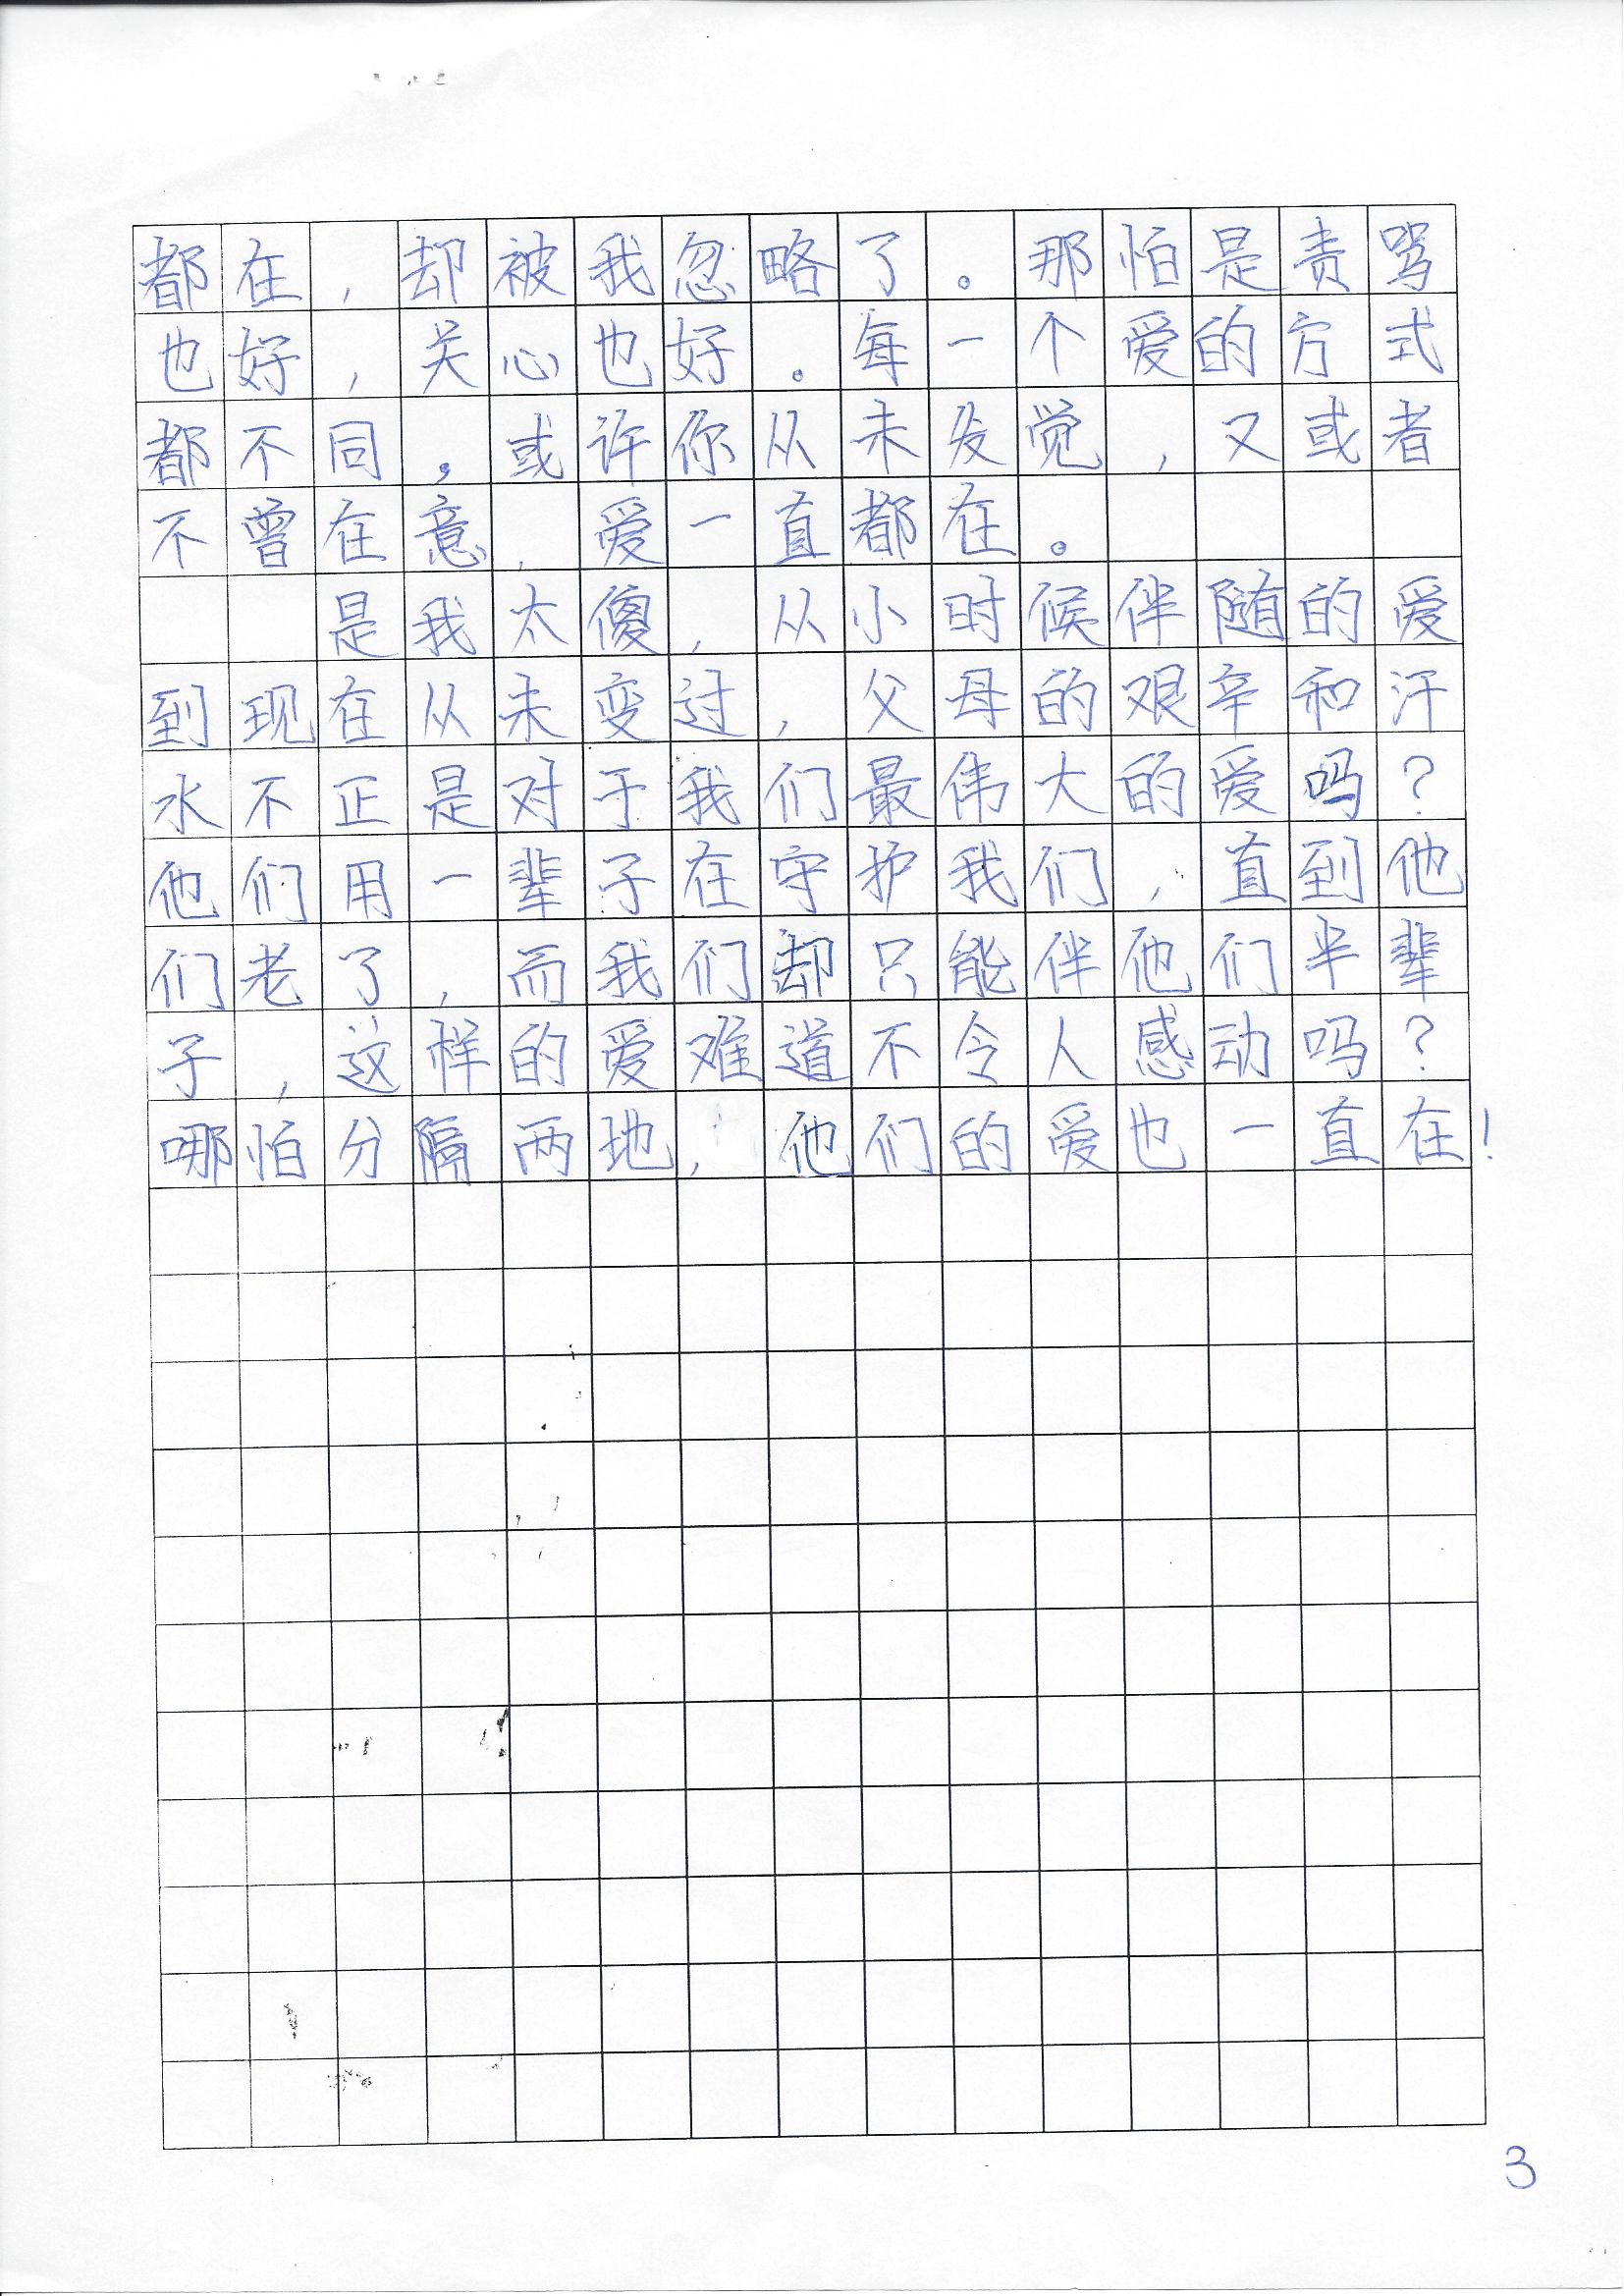 都在，却被我忽略了。那怕是责骂
也好，关心也好。每一个爱的方式
都不同，或许你从未发觉，又或者
不曾在意，爱一直都在。
是我太傻，从小时候伴随的爱
到现在从未变过，父母的艰辛和汗
水不正是对于我们最伟大的爱吗？
他们用一辈子在守护我们，直到他
们老了，而我们却只能伴他们半辈
子，这样的爱难道不令人感动吗？
哪怕分隔两地，他们的爱也一直在！
3